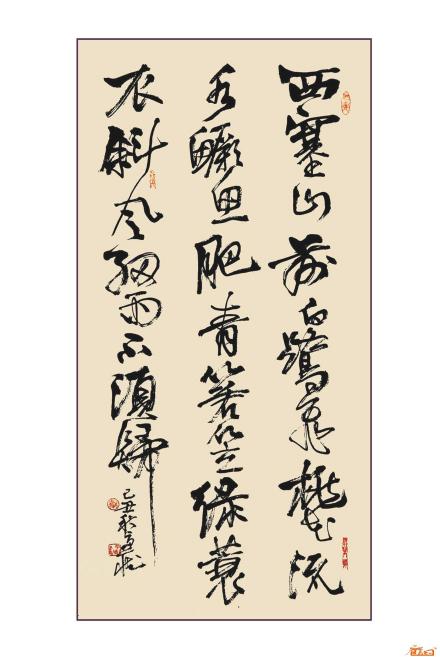 西塞山前白鹭飛桃花流
水鱖魚肥青箬笠绿蓑
衣斜風細雨不須歸
己丑秋